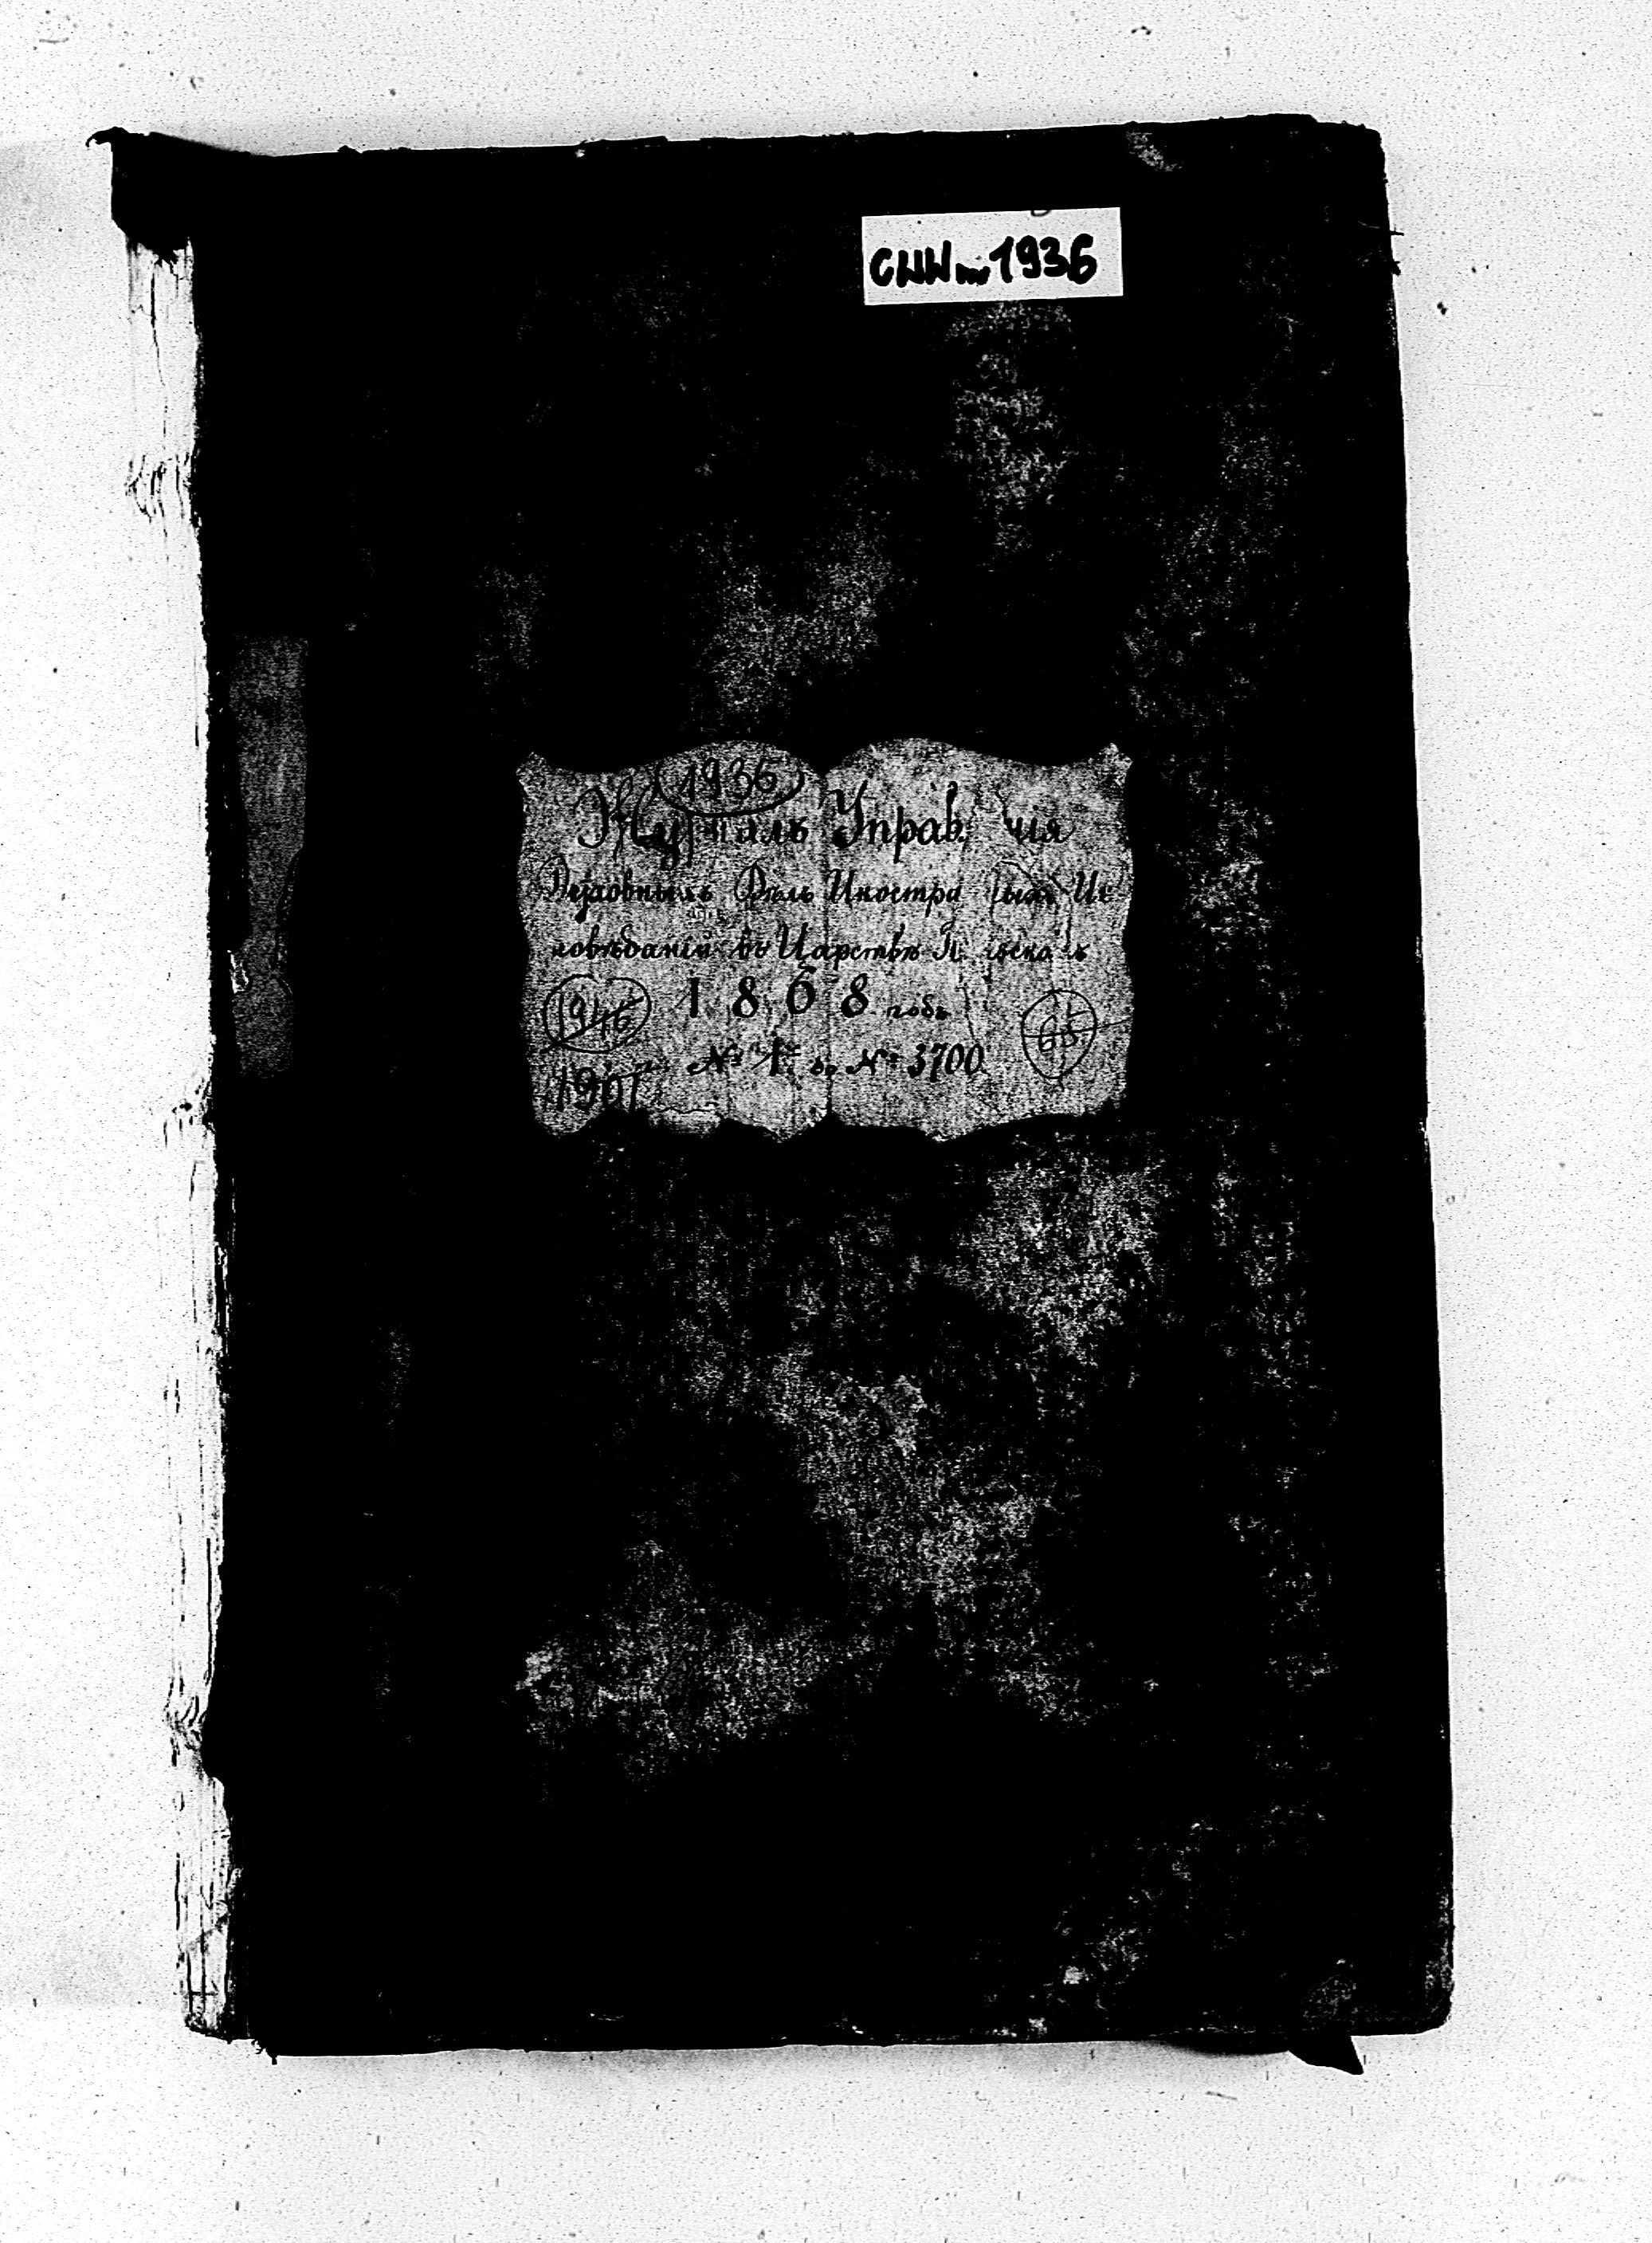 CWW 1936
1936
Журналъ Управ нія
Духовныхъ Дѣлъ Иностра ныхъ Ис
повѣданій въ Царствѣ П льско ъ
1946 1868 годъ 65
№ 1. до № 3700
1901